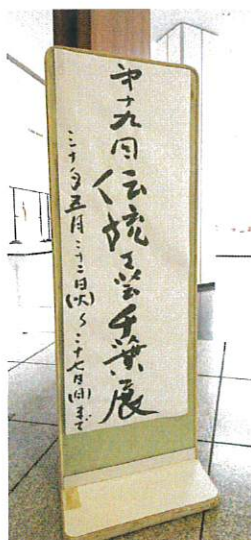 第十九回伝統工芸千葉展
三十年五月二十二日(火)〜二十七日(日)まで